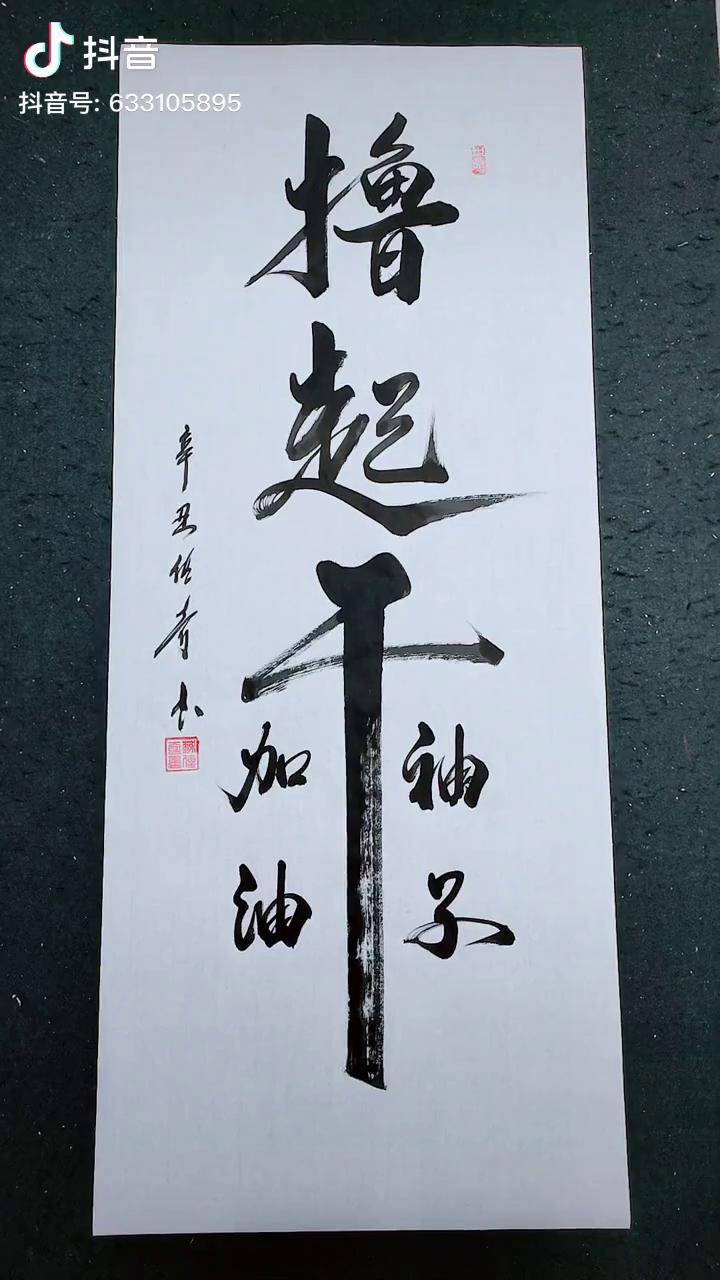 抖音
抖音号: 633105895
撸起干
袖子
加油
辛丑